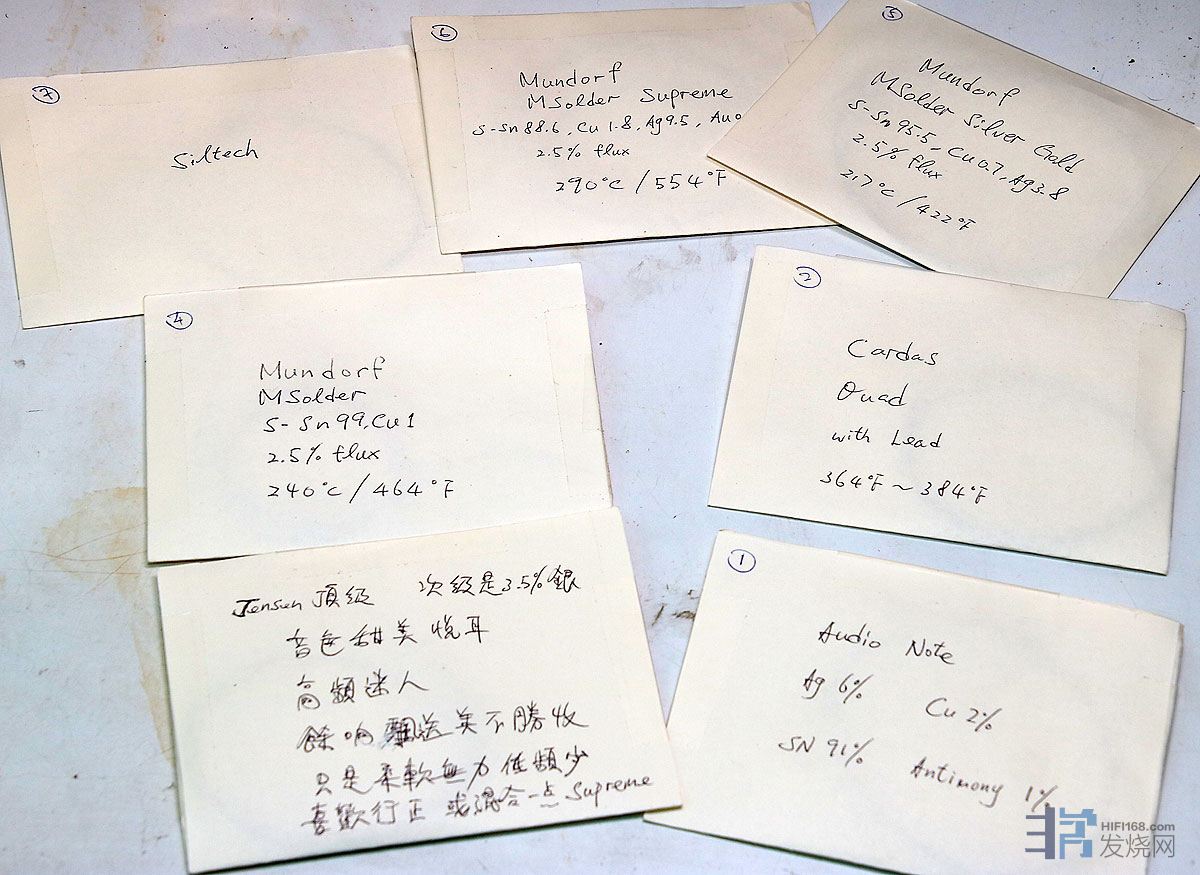 ⑦
Siltech
⑥
Mundorf
MSolder Supreme
S-Sn88.6, Cu1.8, Ag9.5, Au0
2.5% flux
290°C / 554°F
⑤
Mundorf
MSolder Silver Gold
S-Sn95.5, Cu0.7, Ag3.8
2.5% flux
217°C / 422°F
④
Mundorf
MSolder
S-Sn99, Cu1
2.5% flux
240°C / 464°F
②
Cardas
Quad
with Lead
364°F ~ 384°F
Jensen 頂級 次級是3.5%銀
音色甜美悅耳
高頻迷人
餘响飄送美不勝收
只是柔軟無力低頻少
喜歡行正 或混合一点 Supreme
①
Audio Note
Ag 6% Cu 2%
SN 91% Antimony 1%
HIFI168.com
发烧网